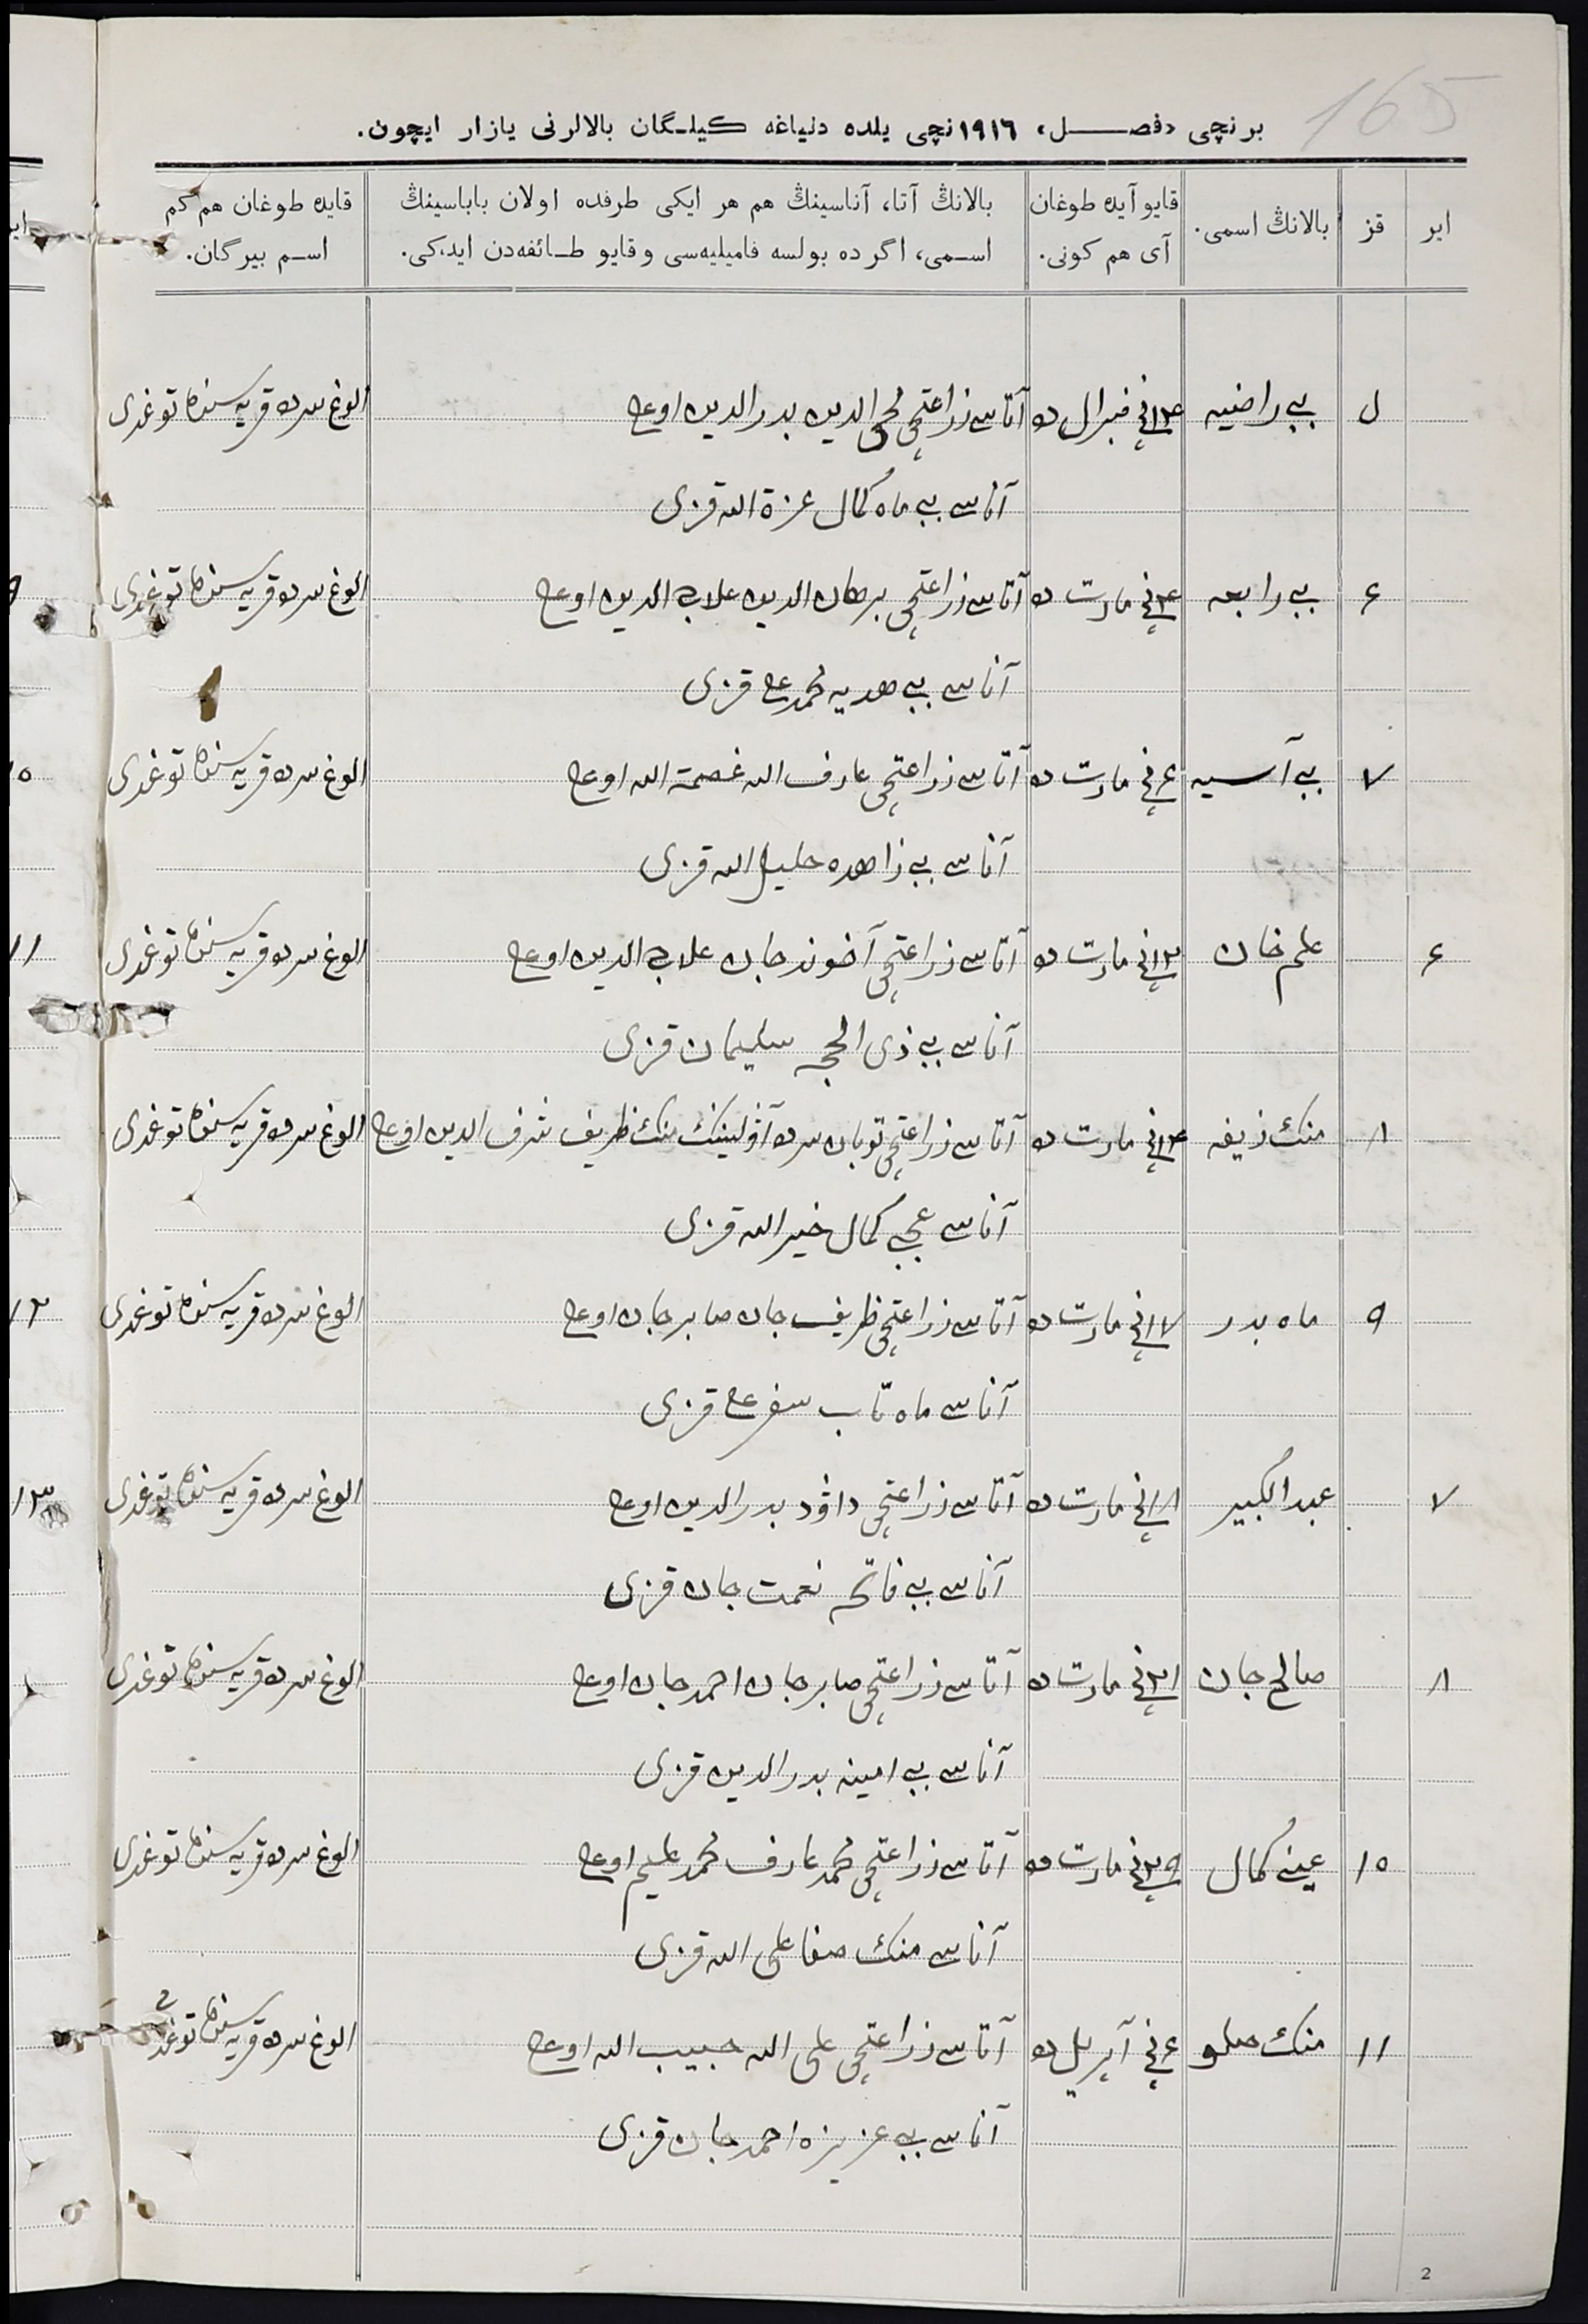 165
برنچی «فصل» ١٩١٦نچی یلده دنیاغه کیلگان بالالرنی یازار ایچون.
ایر
قز
بالانڭ اسمی.
قایو آیده طوغان آی هم کونی.
بالانڭ آتا، آناسینڭ هم هر ایکی طرفده اولان باباسینڭ اسمی، اگرده بولسه فامیلیه‌سی وقایو طائفه‌دن ایدکی.
قایده طوغان هم کم اسم بیرگان.
بی بی راضیه ١٤نچی فبرال ده آتاسی زراعتچی محی الدین بدرالدین اوغلی الوغ سرده قریه سنده توغدی
آناسی بی بی ماه کمال عزة الله قزی
٦ بی بی رابعه ٤نچی مارت ده آتاسی زراعتچی برهان الدین علاج الدین اوغلی الوغ سرده قریه سنده توغدی
آناسی بی بی هدیه محمد علی قزی
٧ بی بی آسیه ٦نچی مارت ده آتاسی زراعتچی عارف الله عصمة الله اوغلی الوغ سرده قریه سنده توغدی
آناسی بی بی زاهده خلیل الله قزی
٦ علم خان ١٢نچی مارت ده آتاسی زراعتچی آخوند جان علاج الدین اوغلی الوغ سرده قریه سنده توغدی
آناسی بی بی ذی الحجه سلیمان قزی
٨ منک زیفه ١٤نچی مارت ده آتاسی زراعتچی توبان سرده آولینک منک ظریف شرف الدین اوغلی الوغ سرده قریه سنده توغدی
آناسی عجبی کمال خیرالله قزی
٩ ماه بدر ١٧نچی مارت ده آتاسی زراعتچی ظریف جان صابر جان اوغلی الوغ سرده قریه سنده توغدی
آناسی ماه تاب سفر علی قزی
٧ عبد الکبیر ١٨نچی مارت ده آتاسی زراعتچی داؤد بدرالدین اوغلی الوغ سرده قریه سنده توغدی
آناسی بی بی فاتحه نعمت جان قزی
٨ صالح جان ٢١نچی مارت ده آتاسی زراعتچی صابر جان احمد جان اوغلی الوغ سرده قریه سنده توغدی
آناسی بی بی امینه بدرالدین قزی
١٠ عینی کمال ٢٩نچی مارت ده آتاسی زراعتچی محمد عارف محمد علیم اوغلی الوغ سرده قریه سنده توغدی
آناسی منک صفا علی الله قزی
١١ منک صلو ٦نچی آپریل ده آتاسی زراعتچی علی الله حبیب الله اوغلی الوغ سرده قریه سنده توغدی
آناسی بی بی عزیزه احمد جان قزی
2